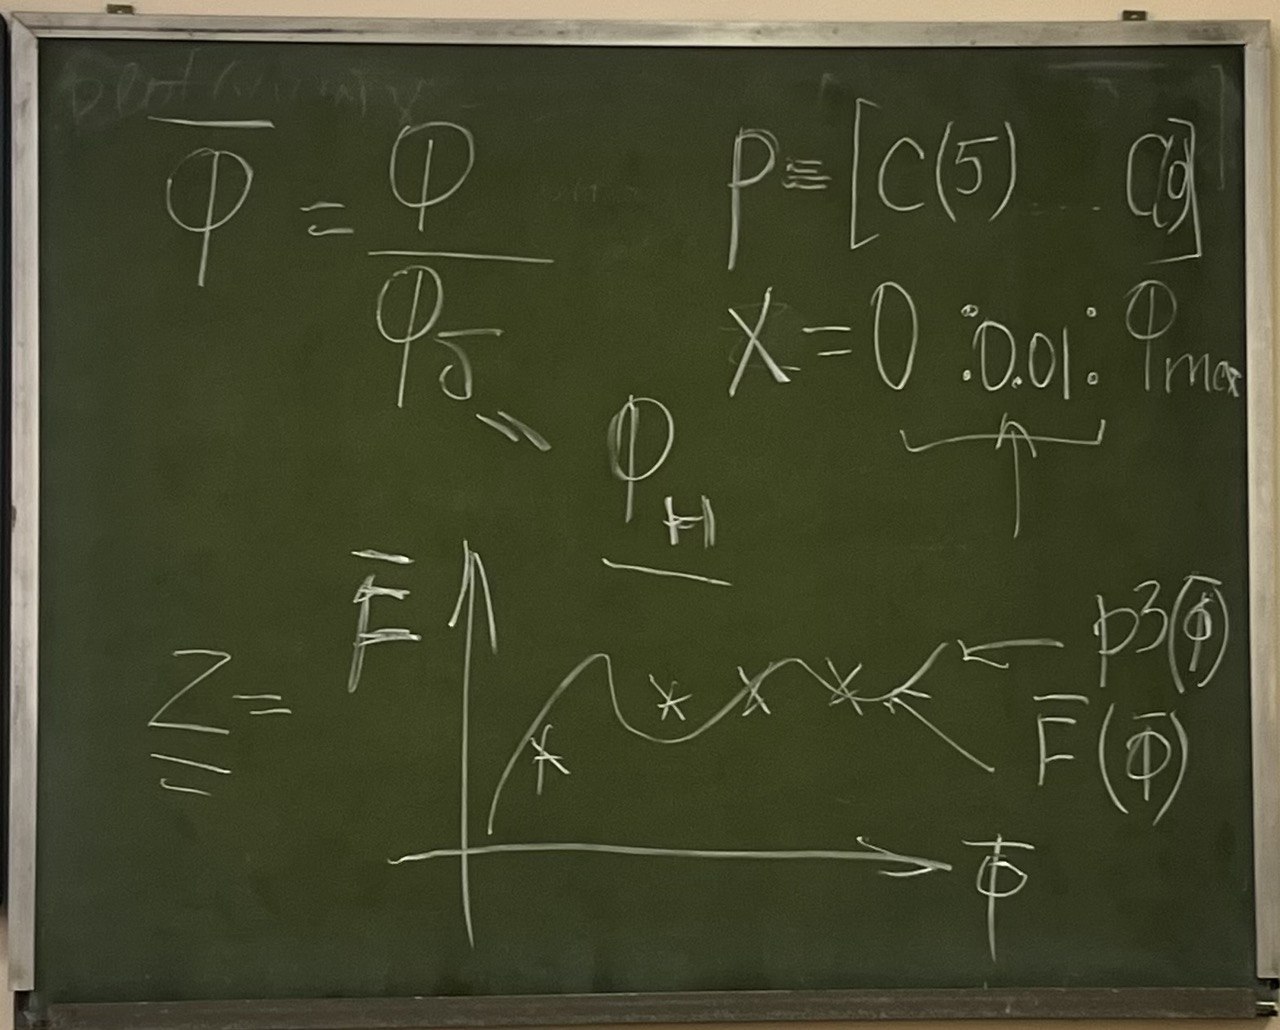 φ̅ = φ / φ_б
φ_н
P ≡ [C(5) .... C(0)]
X = 0 :0.01: φmax
F̅
Z =
p3(φ̅)
F̅(φ̅)
φ̅